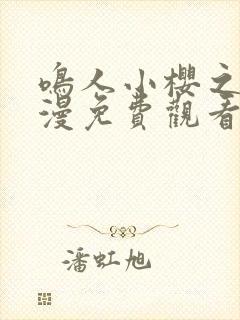 鳴人小櫻之
漫免費觀看
潘虹旭